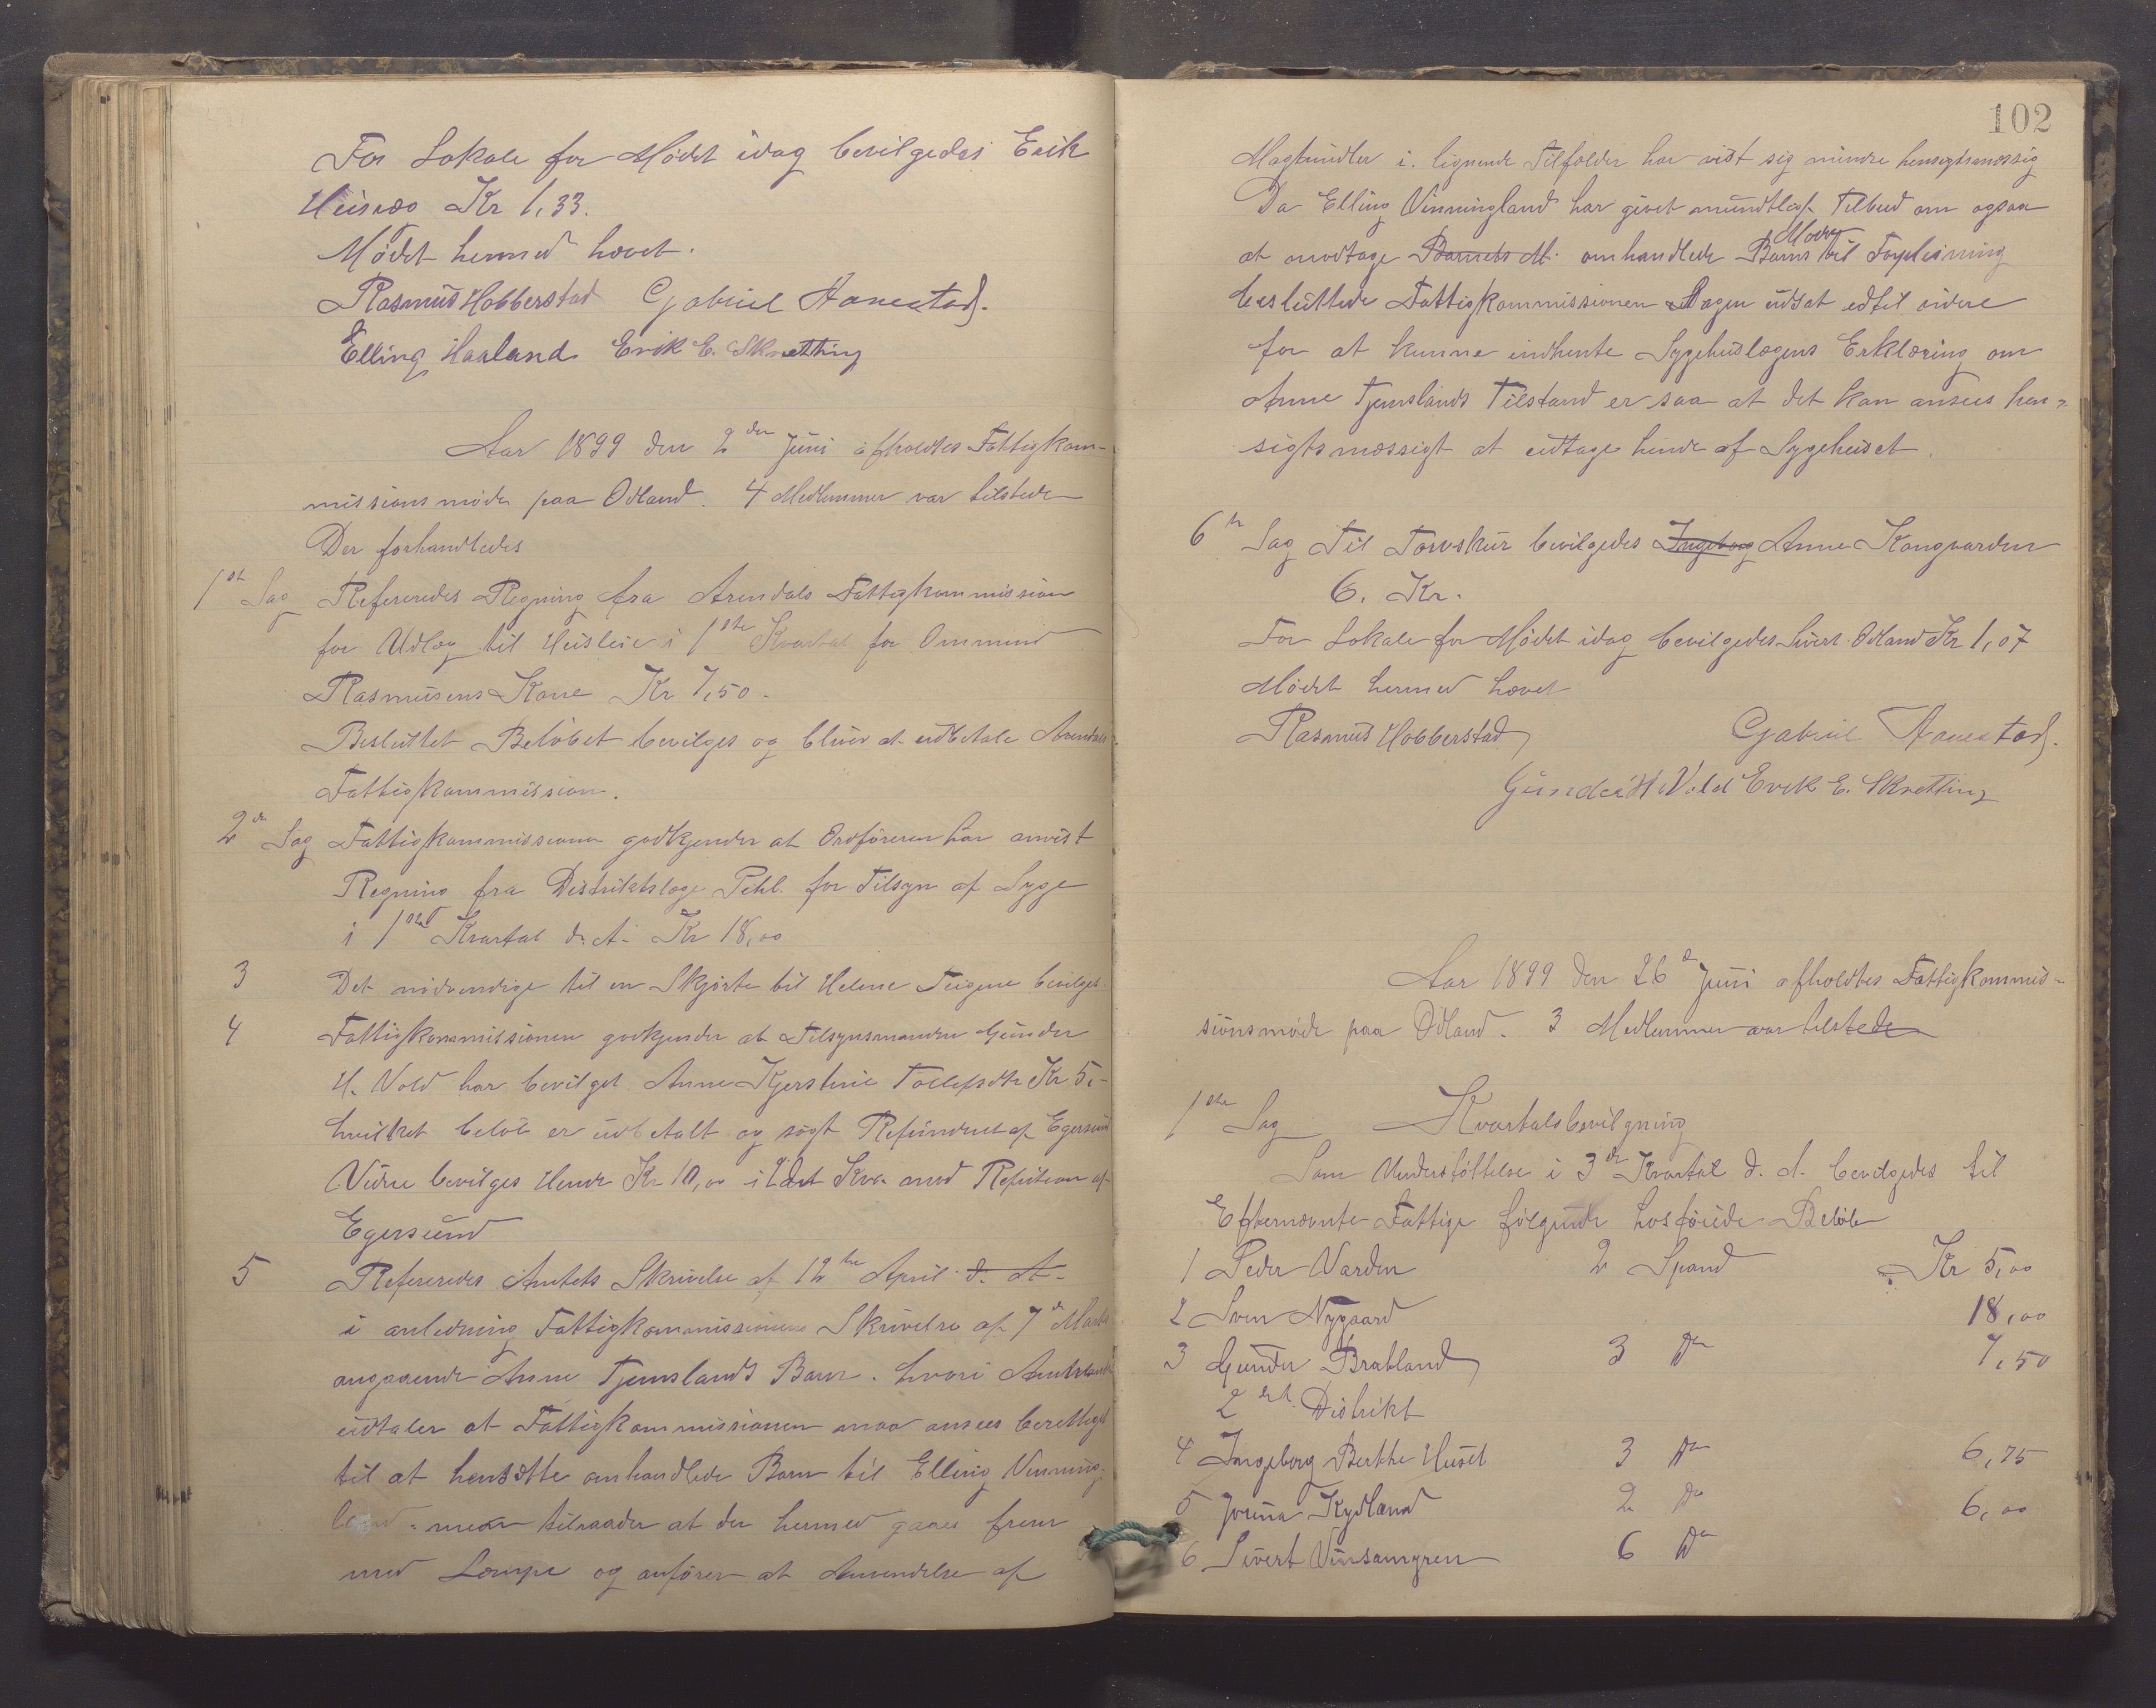 For Lokale for Mødet idag bevilgedes Erik
Kr 1,33.
Mødet hermed hævet.
Rasmus Hobberstad Gabriel Aanestad.
Elling Haaland Erik E. Skretting
Aar 1899 den 2den Juni afholdtes Fattigkom-
missionsmøde paa Odland. 4 Medlemmer var tilstede
Der forhandledes
1ste Sag Refereredes Regning fra Arendals Fattigkommission
for Udlæg til Husleie i 1ste Kvartal for Ommund
Rasmusens Kone Kr 7,50.
Besluttet Beløbet bevilges og bliver at udbetale Arendals
Fattigkommission.
2den Sag Fattigkommissionen godkjender at Ordføreren har anvist
Regning fra Distriktslæge for Tilsyn af Syge
i 1ste Kvartal d. A. Kr 18,00
3 Det nødvendige til en Skjorte til Helene Teigene bevilget.
4 Fattigkommissionen godkjender at Tilsynsmanden Gunder
H. Vold har bevilget Anne Kjerstine Tollefsdtr Kr 5,-
hvilket beløb er udbetalt og søgt Refunderet af Egersund
Videre bevilges Hende Kr 10,00 i 2det Kva. mod Refusion af
Egersund
5 Refereredes Amtets Skrivelse af 12te April d. A.
i anledning Fattigkommissionens Skrivelse af 7de Marts
angaaende Anne Tjemslands Barn. hvori Amtmanden
udtaler at Fattigkommissionen maa ansees berettiget
til at hensætte omhandlede Barn til Elling Vinning-
land - men tilraader at der hermed gaaes frem
med Lempe og anfører at Anvendelse af
102
Magtmidler i lignende Tilfælder har vist sig mindre hensigtsmæssig
Da Elling Vinningland har givet mundtlig Tilbud om ogsaa
at modtage Barnets M. omhandlede Barns Moder til Forpleining
besluttede Fattigkommissionen Sagen udsat indtil videre
for at kunne indhente Sygehuslægens Erklæring om
Anne Tjemslands Tilstand er saa at det kan ansees hen-
sigtsmæssigt at udtage hende af Sygehuset.
6te Sag Til Torvskur bevilgedes Ingeborg Anne Kongvarden
6. Kr.
For Lokale for Mødet idag bevilgedes Sivert Odland Kr 1,07
Mødet hermed hævet
Rasmus Hobberstad Gabriel Aanestad.
Gunder H. Vold Erik E. Skretting
Aar 1899 den 26de Juni afholdtes Fattigkommis-
sionsmøde paa Odland. 3 Medlemmer var tilstede
1ste Sag Kvartalsbevilgning
Som Understøttelse i 3de Kvartal d. A. bevilgedes til
Efternævnte Fattige følgende hosføiede Beløb
1 Peder Varden 2 Spand Kr 5,00
2 Sven Nygaard 18,00
3 Gunder Bratland 3 Do 7,50
2det Distrikt
4 Ingeborg Berthe Huset 3 Do 6,75
5 Jorina Kydland 2 Do 6,00
6 Sivert 6 Do